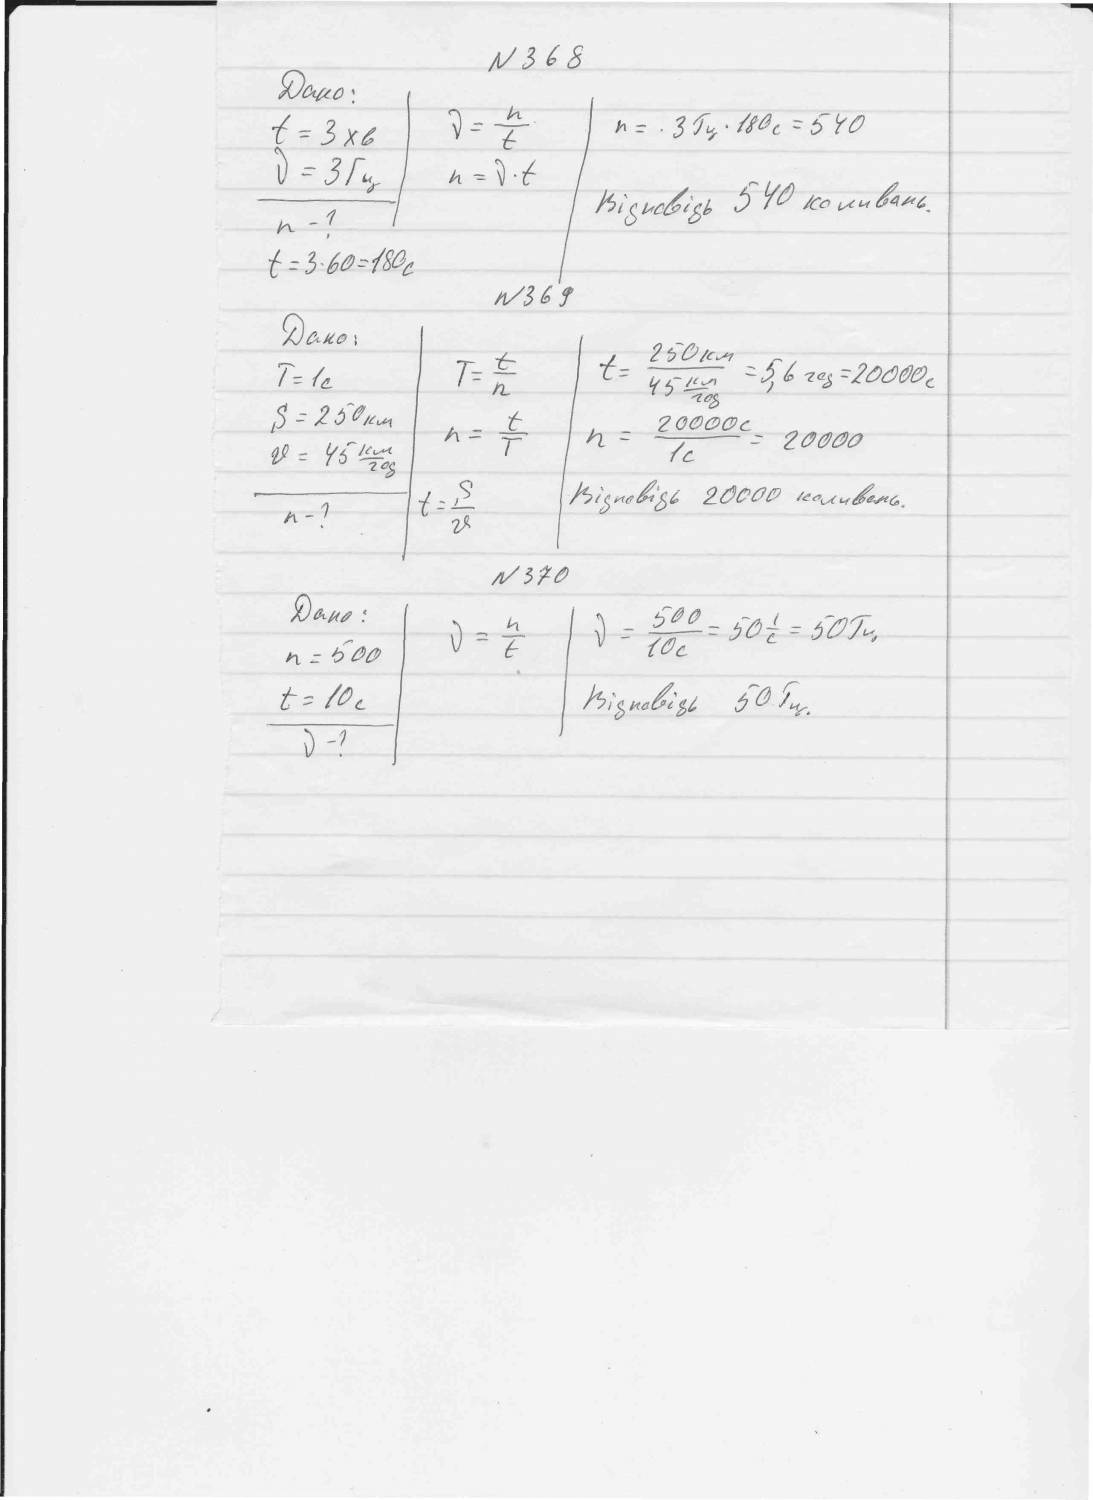 N368
Дано:
t = 3 хв
ν = 3Гц
n - ?
t = 3·60 = 180с
ν = n/t
n = ν·t
n = · 3Гц · 180с = 540
Відповідь 540 коливань.
N369
Дано:
T = 1с
S = 250км
v = 45 км/год
n - ?
T = t/n
n = t/T
t = S/v
t = 250км/45 км/год = 5,6 год = 20000с
n = 20000с/1с = 20000
Відповідь 20000 коливань.
N370
Дано:
n = 500
t = 10с
ν - ?
ν = n/t
ν = 500/10с = 50 1/с = 50Гц
Відповідь 50Гц.